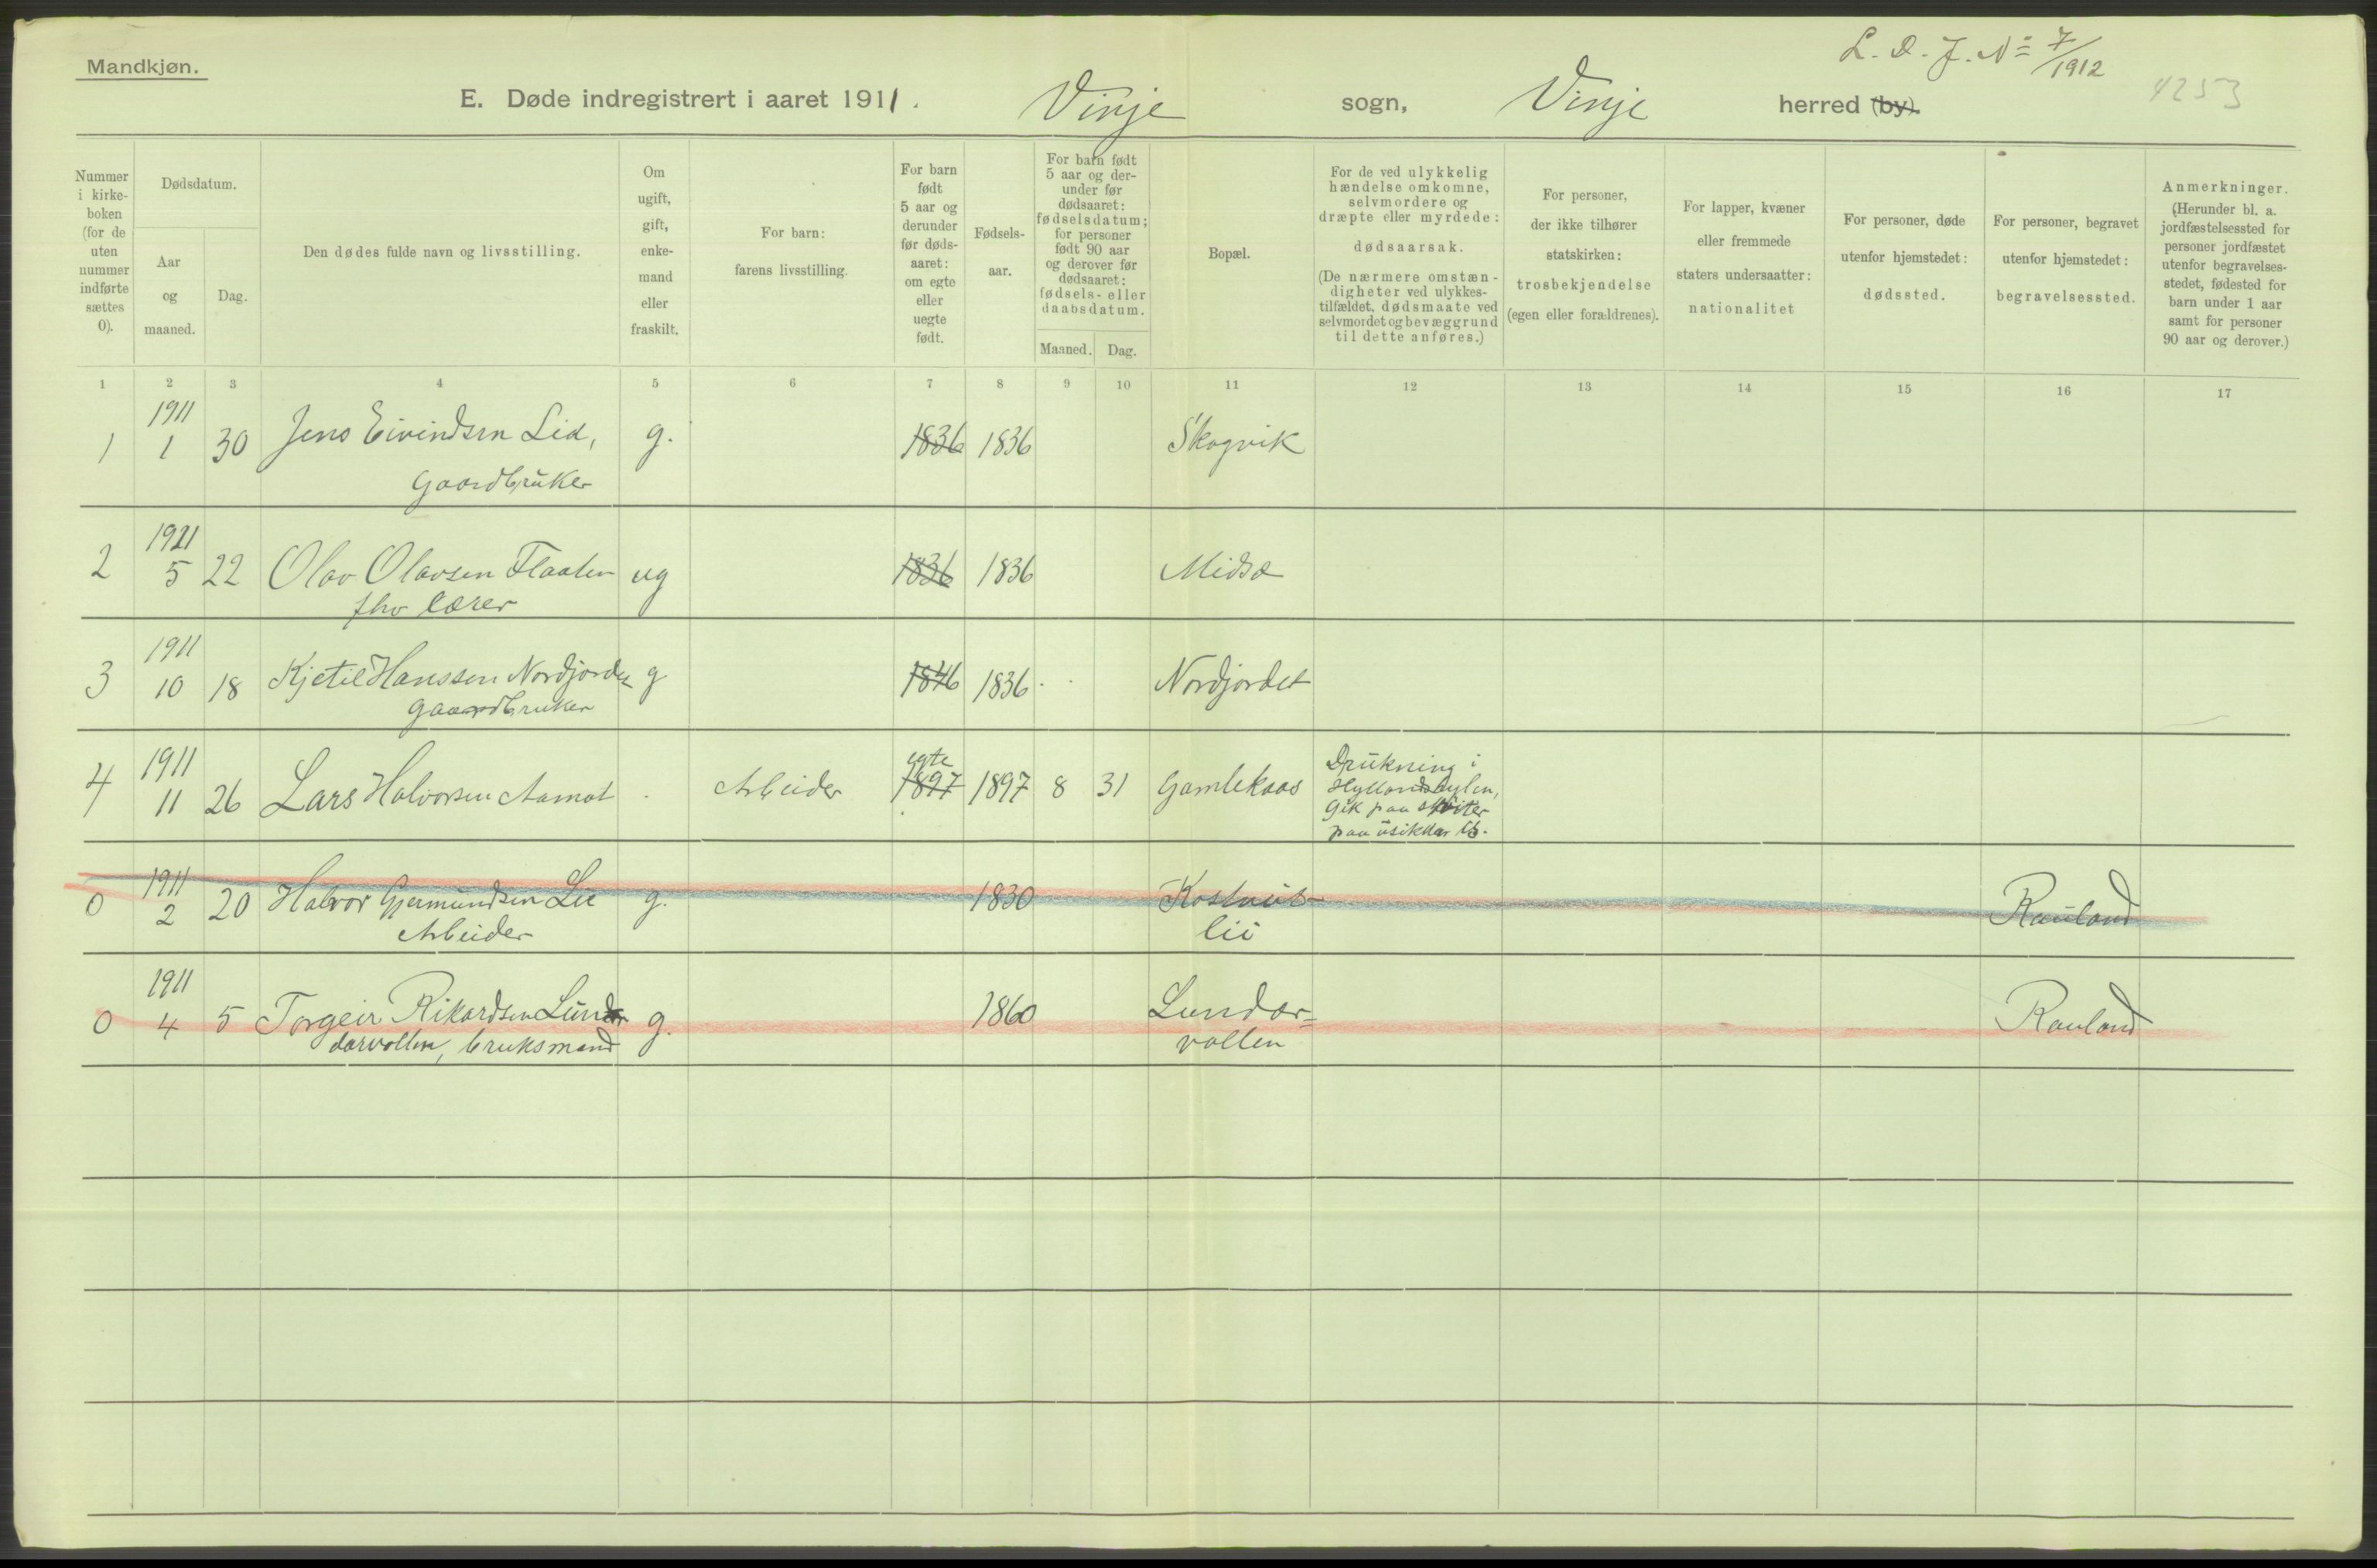 L. D. J. No 7/1912
4253
Mandkjøn.
E. Døde indregistrert i aaret 1911. Vinje sogn, Vinje herred (by).
Nummer i kirkeboken (for de uten nummer indførte sættes 0).
Dødsdatum.
Aar og maaned.
Dag.
Den dødes fulde navn og livsstilling.
Om ugift, gift, enkemand eller fraskilt.
For barn: farens livsstilling.
For barn født 5 aar og derunder før dødsaaret: om egte eller uegte født.
Fødselsaar.
For barn født 5 aar og derunder før dødsaaret: fødselsdatum; for personer født 90 aar og derover før dødsaaret: fødsels- eller daabsdatum.
Maaned. Dag.
Bopæl.
For de ved ulykkelig hændelse omkomne, selvmordere og dræpte eller myrdede: dødsaarsak. (De nærmere omstændigheter ved ulykkestilfældet, dødsmaate ved selvmordet og bevæggrund til dette anføres.)
For personer, der ikke tilhører statskirken: trosbekjendelse (egen eller forældrenes).
For lapper, kvæner eller fremmede staters undersaatter: nationalitet
For personer, døde utenfor hjemstedet: dødssted.
For personer, begravet utenfor hjemstedet: begravelsessted.
Anmerkninger. (Herunder bl. a. jordfæstelsessted for personer jordfæstet utenfor begravelsesstedet, fødested for barn under 1 aar samt for personer 90 aar og derover.)
1 2 3 4 5 6 7 8 9 10 11 12 13 14 15 16 17
1911
1 1 30 Jens Eivindsen Lid, g. 1836 1836 Skogvik
Gaardbruker
1911
2 5 22 Olav Olavsen Flaaten ug 1836 1836 Midbø
fhv lærer
1911
3 10 18 Kjetil Hanssen Nordjordet g 1846 1836 Nordjordet
gaardbruker
1911 egte Drukning i
4 11 26 Lars Halvorsen Aamot Arbeider 1897 1897 8 31 Gamlekaas Hyllandshylen,
Gik paa skøiter
paa usikker is.
1911
0 2 20 Halvor Gjermundsen Lie g. 1830 Rauland
Arbeider lii
1911
0 4 5 Torgeir Rikardsen Lun g. 1860 Lundar= Rauland
darvollen, bruksmand vollen